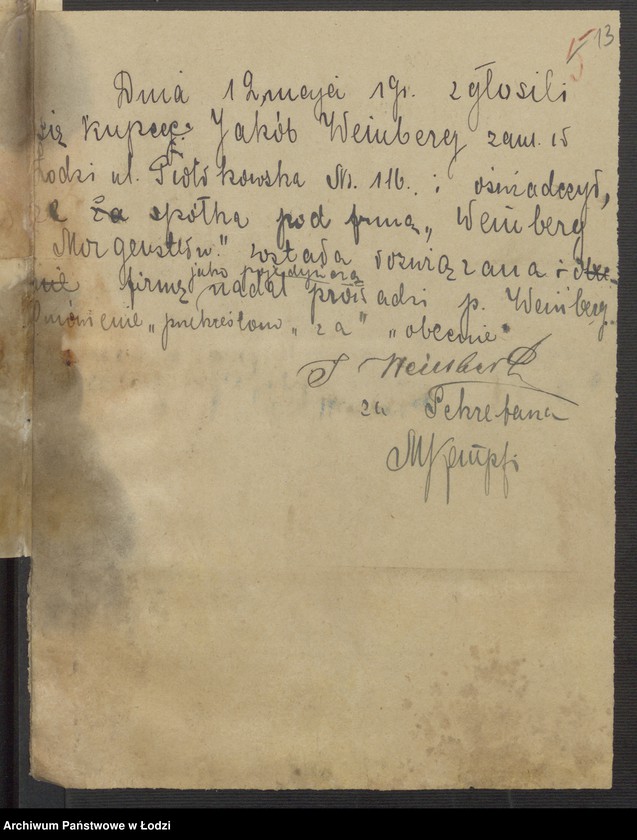 13
5
Dnia 12 maja 19r. zgłosili
się kupcy: Jakób Weinberg zam. w
Łodzi ul. Piotrkowska № 116. i oświadczył,
że za spółka pod firmą „Weinberg
Morgenstern." została rozwiązana i obec-
nie firmę jako pojedynczą nadal prowadzi p. Weinberg.
Omówienie „przekreślono „za" „obecnie"
J Weinberg
za Sekretarza
Archiwum Państwowe w Łodzi